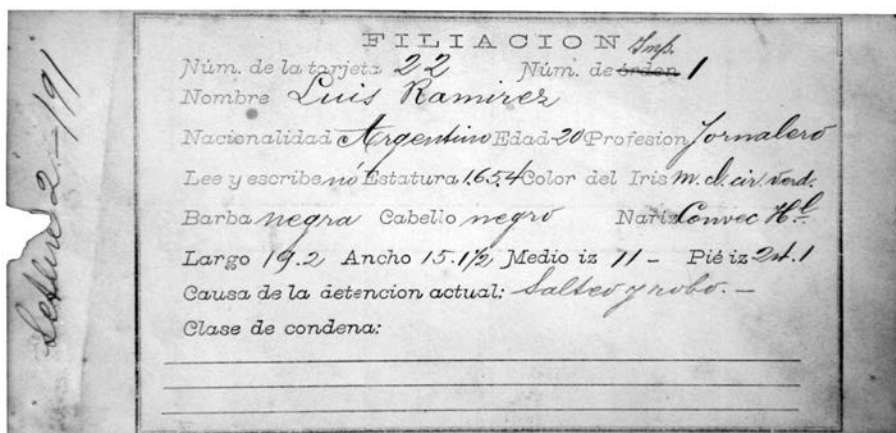 FILIACION Imp.
Núm. de la tarjeta 22 Núm. de órden 1
Nombre Luis Ramirez
Nacionalidad Argentino Edad 20 Profesion Jornalero
Lee y escribe nó Estatura 1.654 Color del Iris m. cl. cir. verd.
Barba negra Cabello negro Nariz Convec Hl.
Largo 19.2 Ancho 15.1/2 Medio iz 11 - Pié iz 24.1
Causa de la detencion actual: Salteo y robo. -
Clase de condena:
2-191